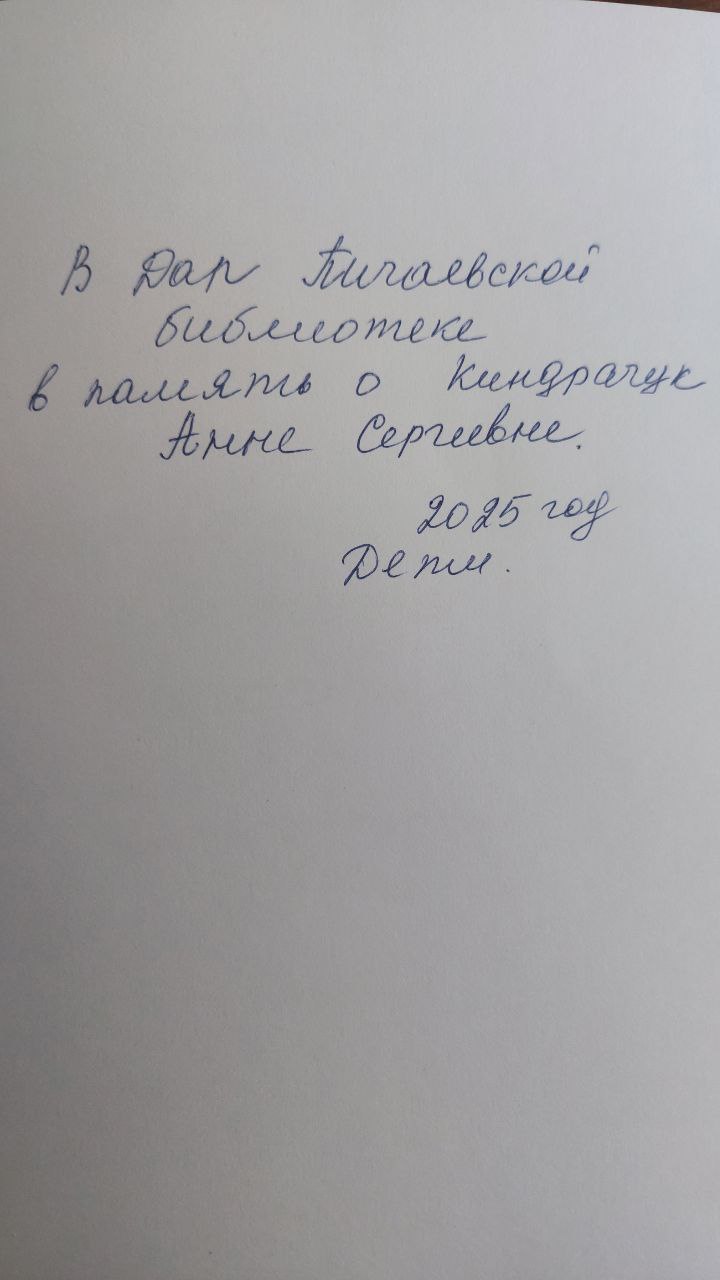 В Дар Пичаевской
библиотеке
в память о Киндрачук
Анне Сергеевне.
2025 год
Дети.